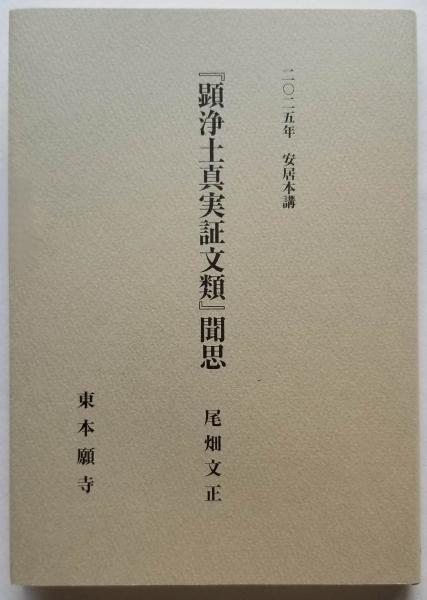 二〇二五年　安居本講
『顕浄土真実証文類』聞思
尾畑文正
東本願寺